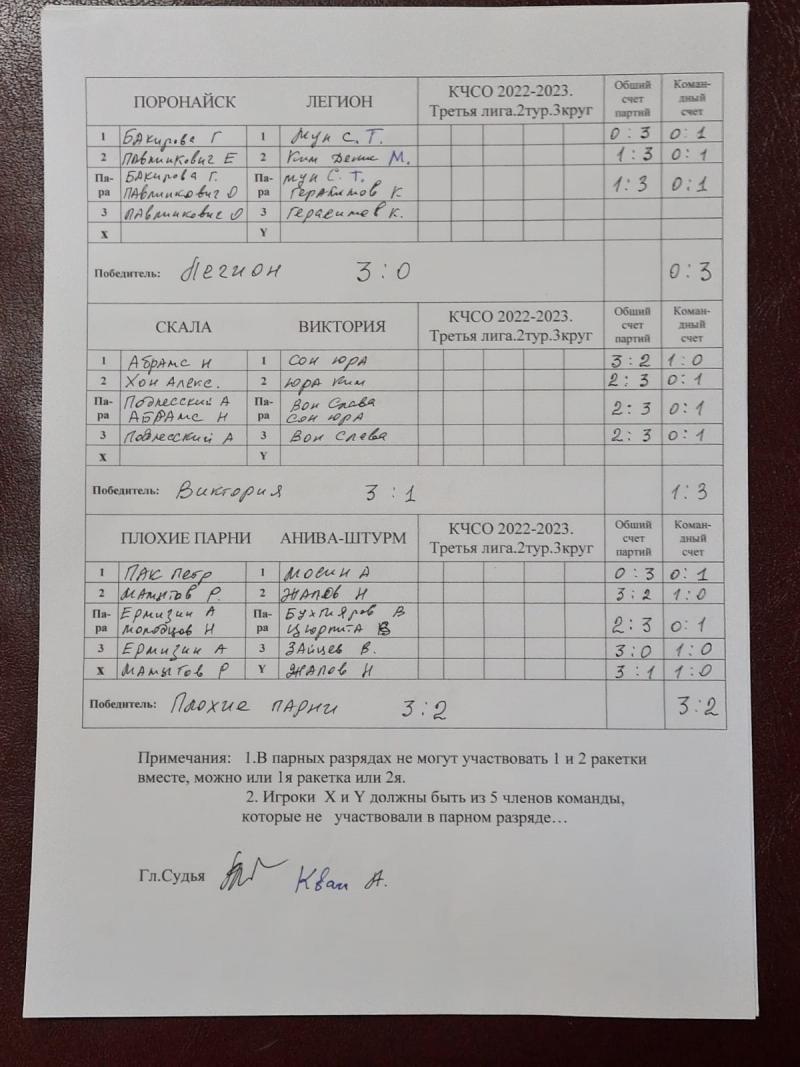 ПОРОНАЙСК ЛЕГИОН КЧСО 2022-2023. Третья лига.2тур.3круг Общий счет партий Коман-дный счет
1 БАкирова Г 1 Мун С.Т. 0:3 0:1
2 ПАвлинкович Е 2 Ким Денис М. 1:3 0:1
Па-ра БАкирова Г. Па-ра Мун С.Т. 1:3 0:1
ПАвлинкович О Герасимов К
3 ПАвлинкович О 3 Герасимов К.
X Y
Победитель: Легион 3:0 0:3
СКАЛА ВИКТОРИЯ КЧСО 2022-2023. Третья лига.2тур.3круг Общий счет партий Коман-дный счет
1 Абрамс Н 1 Сон Юра 3:2 1:0
2 Хон Алекс. 2 Юра Ким 2:3 0:1
Па-ра Подлесский А Па-ра Вон Слава 2:3 0:1
АБРАмс Н Сон ЮРА
3 Подлесский А 3 Вон Слава 2:3 0:1
X Y
Победитель: Виктория 3:1 1:3
ПЛОХИЕ ПАРНИ АНИВА-ШТУРМ КЧСО 2022-2023. Третья лига.2тур.3круг Общий счет партий Коман-дный счет
1 ПАК Петр 1 Мосин А 0:3 0:1
2 МАмытов Р. 2 ЖАпов Н 3:2 1:0
Па-ра Ермизин А Па-ра Бухтияров В 2:3 0:1
Молодцов Н В
3 Ермизин А 3 ЗАйцев В. 3:0 1:0
X МАмытов Р Y ЖАпов Н 3:1 1:0
Победитель: Плохие парни 3:2 3:2
Примечания: 1.В парных разрядах не могут участвовать 1 и 2 ракетки
вместе, можно или 1я ракетка или 2я.
2. Игроки X и Y должны быть из 5 членов команды,
которые не участвовали в парном разряде…
Гл.Судья Кван А.